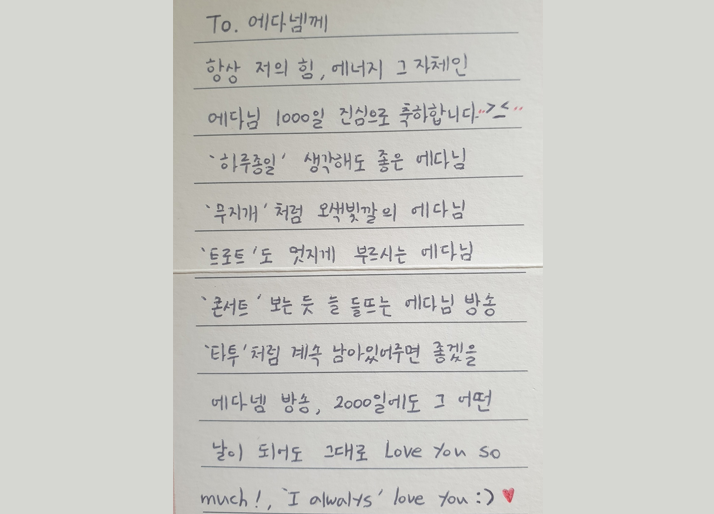 To. 에다넴께
항상 저의 힘, 에너지 그 자체인
에다님 1000일 진심으로 축하합니다."><"
'하루종일' 생각해도 좋은 에다님
'무지개'처럼 오색빛깔의 에다님
'트로트'도 멋지게 부르시는 에다님
'콘서트' 보는 듯 늘 들뜨는 에다님 방송
'타투'처럼 계속 남아있어주면 좋겠을
에다넴 방송, 2000일에도 그 어떤
날이 되어도 그대로 Love You so
much!, 'I always' love you :) ♥